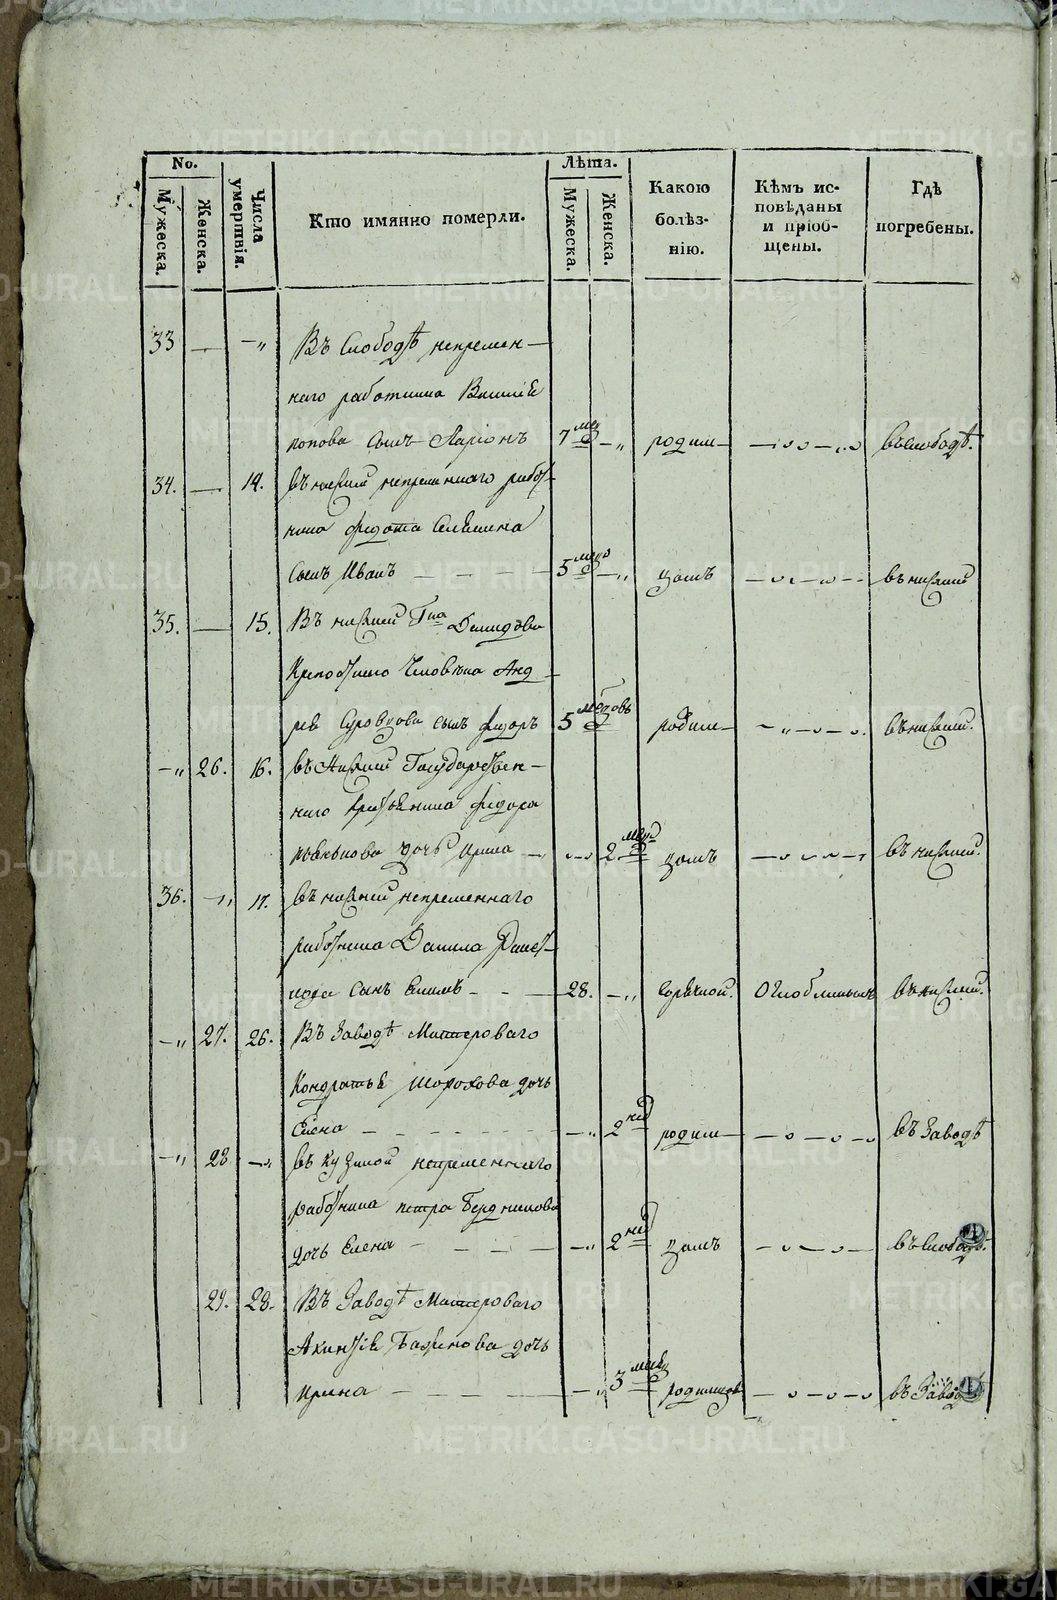 No.
Мужеска.
Женска.
Числа умертвія.
Кто имянно померли.
Лѣта.
Мужеска.
Женска.
Какою болѣз-нію.
Кѣмъ ис-повѣданы и пріоб-щены.
Гдѣ погребены.
33 — —„ Въ Слободѣ непремен-
наго работника
попова сынъ Ларіонъ 7 мец —„ родим— въ слободѣ.
34. — 14. въ нижней непременнаго работ-
ника федота
сынъ Иванъ — — — — 5 меца —„ тожъ въ нижней
35. — 15. Въ нижней Гна Демидова
Крепостнаго Человека Анд-
рея Суровцова сынъ федоръ 5 родим— въ нижней.
—„ 26. 16. въ Нижней Государствен-
наго Крестьянина федора
дочь Ирина — 2 меца тожъ въ нижней.
36. —„ 17. въ нижней непременнаго
работника Данила
сынъ — — 28. —„ горячкой. въ нижней.
—„ 27. 26. Въ Заводѣ Мастероваго
Кондратья Шорохова дочь
Елена — — — —„ 2 нед родим— въ Заводѣ
—„ 28 —„ въ Кузиной непременнаго
работника петра Бердникова
дочь Елена — — — —„ 2 нед тожъ въ Слободѣ.
29. 28. Въ Заводѣ Мастероваго
Акинтія Баженова дочь
Ирина — — — —„ 3 месец родимцов въ Заводѣ
METRIKI.GASO-URAL.RU